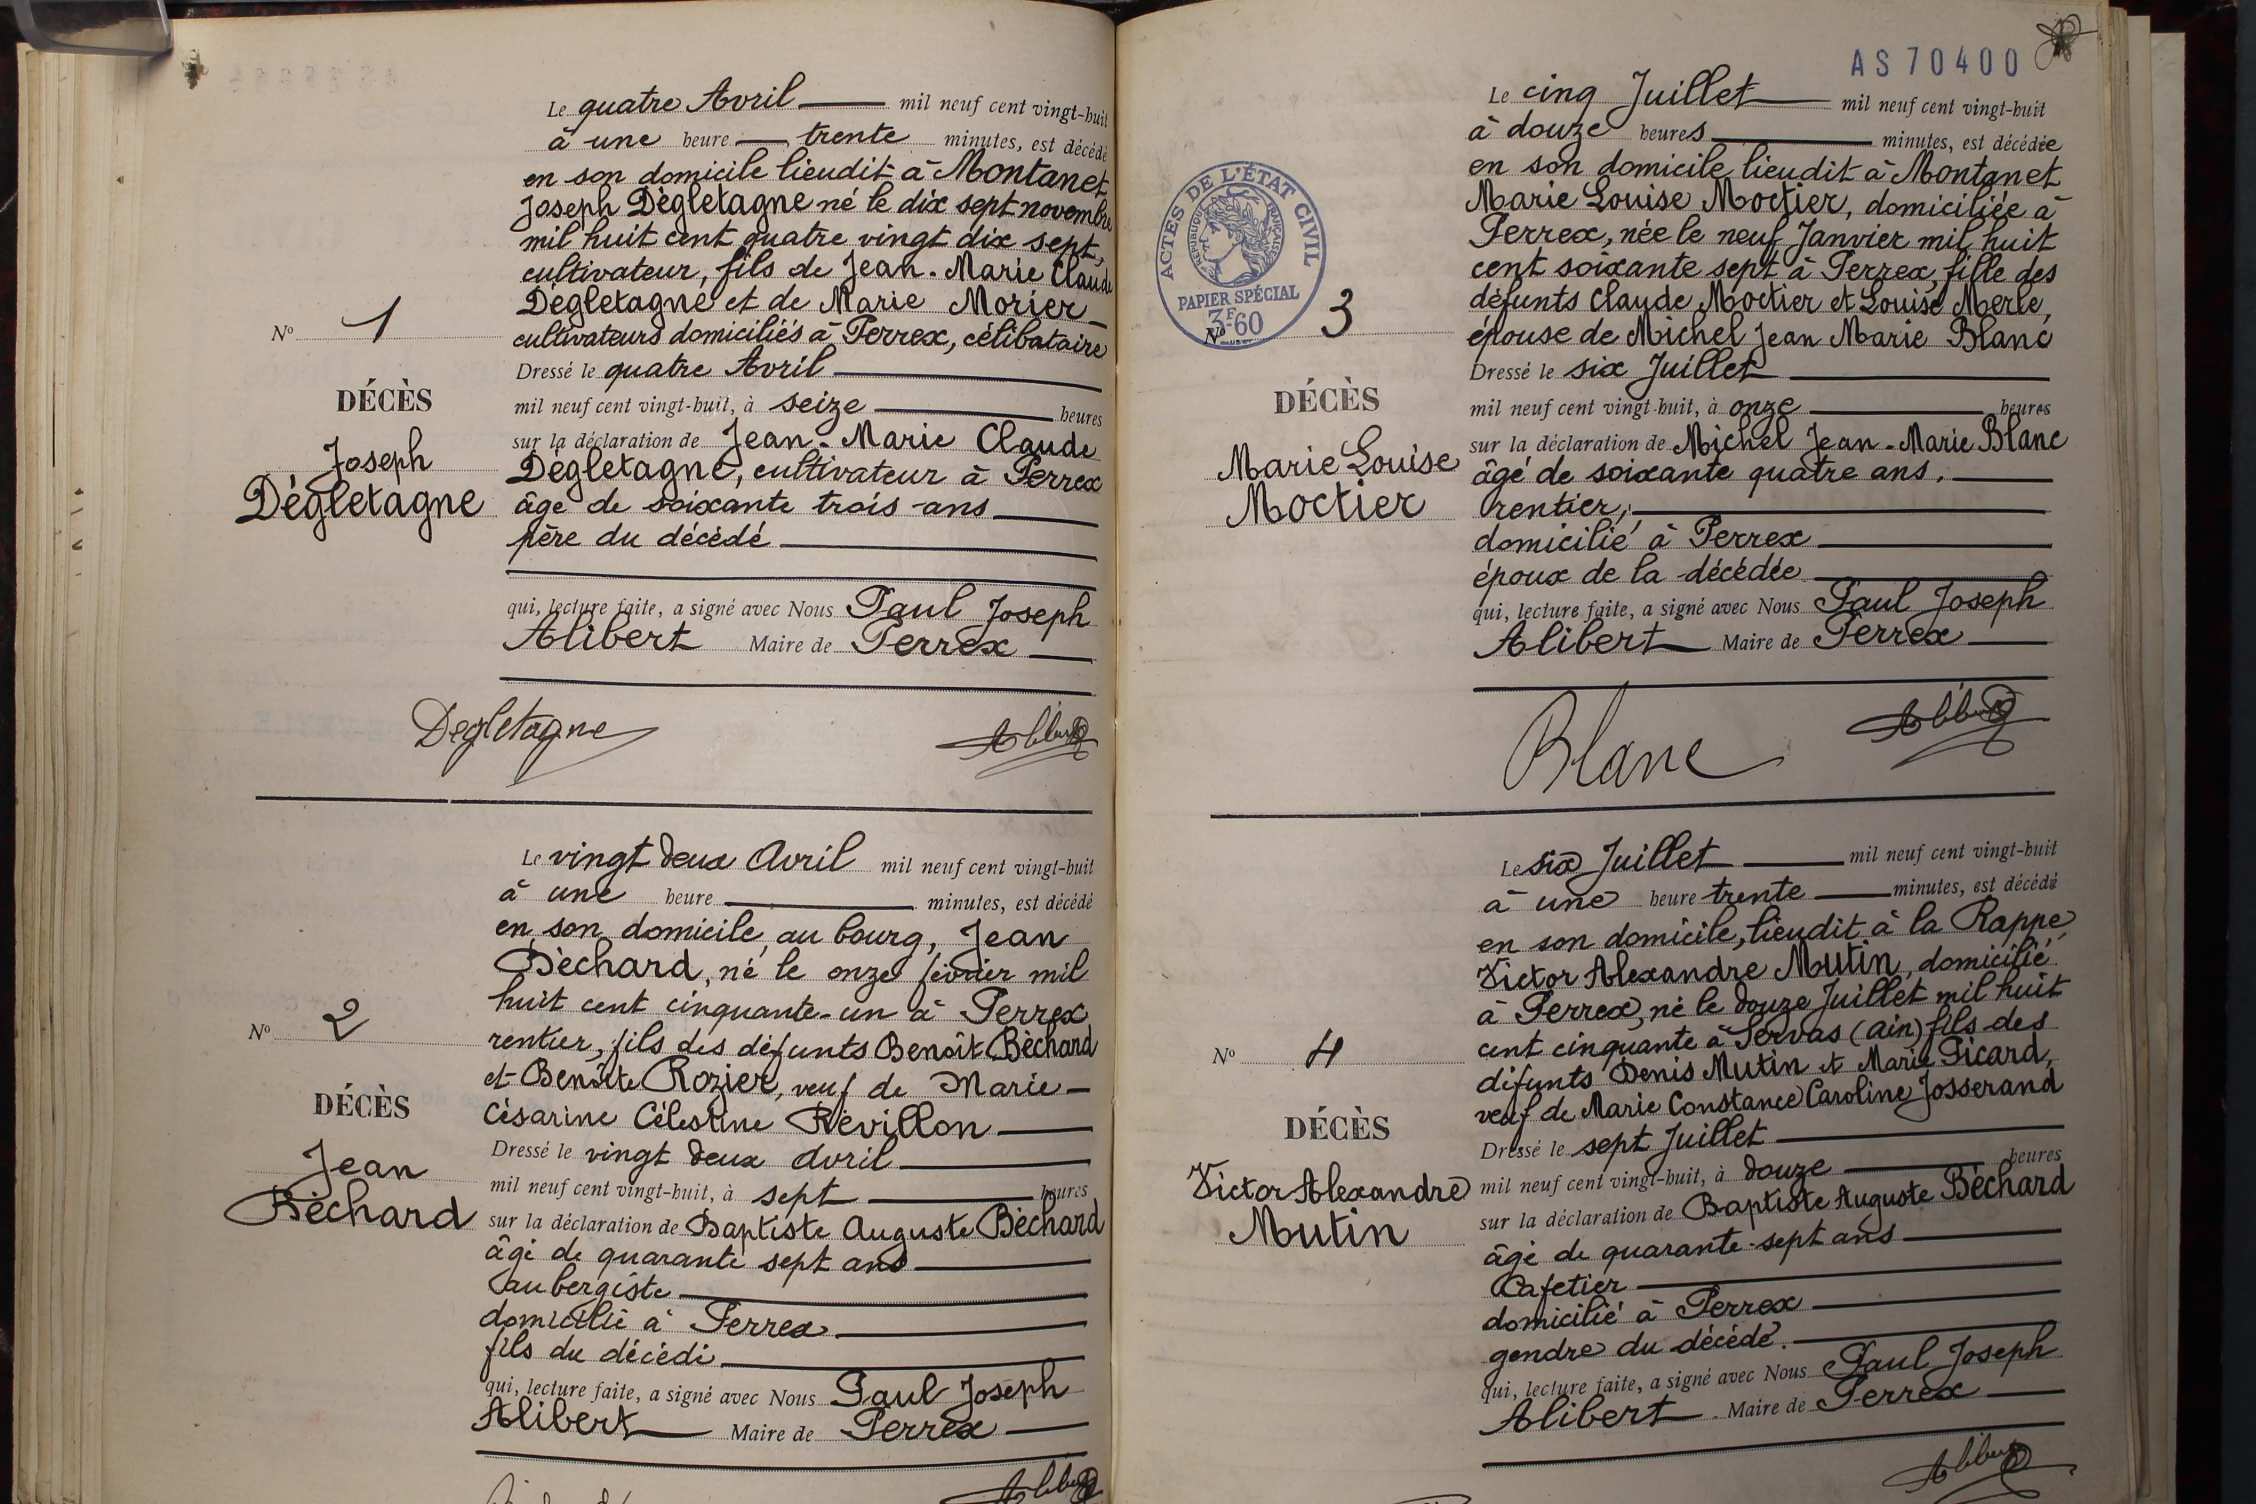 Le quatre Avril mil neuf cent vingt-huit
à une heure trente minutes, est décédé
en son domicile lieudit à Montanet
Joseph Dégletagne né le dix sept novembre
mil huit cent quatre vingt dix sept,
cultivateur, fils de Jean-Marie Claude
Dégletagne et de Marie Morier
cultivateurs domiciliés à Perrex, célibataire
Dressé le quatre Avril
mil neuf cent vingt-huit, à seize heures
sur la déclaration de Jean-Marie Claude
Dégletagne, cultivateur à Perrex
âgé de soixante trois ans
père du décédé
qui, lecture faite, a signé avec Nous Paul Joseph
Alibert Maire de Perrex
N° 1
DÉCÈS
Joseph
Dégletagne
Degletagne
Alibert
Le vingt deux Avril mil neuf cent vingt-huit
à une heure minutes, est décédé
en son domicile, au bourg, Jean
Béchard, né le onze février mil
huit cent cinquante-un à Perrex
rentier, fils des défunts Benoît Béchard
et Benoîte Rozier, veuf de Marie
Césarine Célestine Révillon
Dressé le vingt deux avril
mil neuf cent vingt-huit, à sept heures
sur la déclaration de Baptiste Auguste Béchard
âgé de quarante sept ans
aubergiste
domicilié à Perrex
fils du décédé
qui, lecture faite, a signé avec Nous Paul Joseph
Alibert Maire de Perrex
N° 2
DÉCÈS
Jean
Béchard
Alibert
AS 70400
ACTES DE L'ÉTAT CIVIL
RÉPUBLIQUE FRANÇAISE
PAPIER SPÉCIAL
3F60
Le cinq Juillet mil neuf cent vingt-huit
à douze heures minutes, est décédée
en son domicile lieudit à Montanet
Marie Louise Moctier, domiciliée à
Perrex, née le neuf Janvier mil huit
cent soixante sept à Perrex, fille des
défunts Claude Moctier et Louise Merle,
épouse de Michel Jean Marie Blanc
Dressé le six Juillet
mil neuf cent vingt-huit, à onze heures
sur la déclaration de Michel Jean-Marie Blanc
âgé de soixante quatre ans,
rentier,
domicilié à Perrex
époux de la décédée
qui, lecture faite, a signé avec Nous Paul Joseph
Alibert Maire de Perrex
N° 3
DÉCÈS
Marie Louise
Moctier
Blanc
Alibert
Le six Juillet mil neuf cent vingt-huit
à une heure trente minutes, est décédé
en son domicile, lieudit à la Rappe
Victor Alexandre Mutin, domicilié
à Perrex, né le douze Juillet mil huit
cent cinquante à Servas (ain) fils des
défunts Denis Mutin et Marie Picard,
veuf de Marie Constance Caroline Josserand
Dressé le sept Juillet
mil neuf cent vingt-huit, à douze heures
sur la déclaration de Baptiste Auguste Béchard
âgé de quarante-sept ans
Cafetier
domicilié à Perrex
gendre du décédé.
qui, lecture faite, a signé avec Nous Paul Joseph
Alibert Maire de Perrex
N° 4
DÉCÈS
Victor Alexandre
Mutin
Alibert